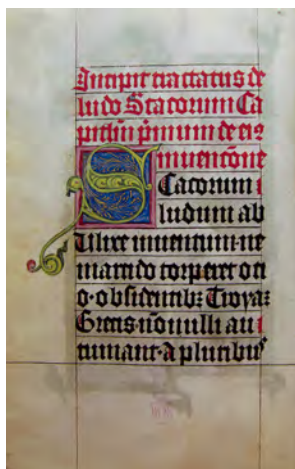 Incipit tractatus de
ludo Scacorum Ca
pitlm p̄mum de eiꝰ
inuencōne
SCacorum
ludum ab
Ulixe inuentum · ne
marcido torperet oci
o · obsidentibꝫ Troyaꝫ
Grecis · nōnulli au
tumant · A pluribuꝰ